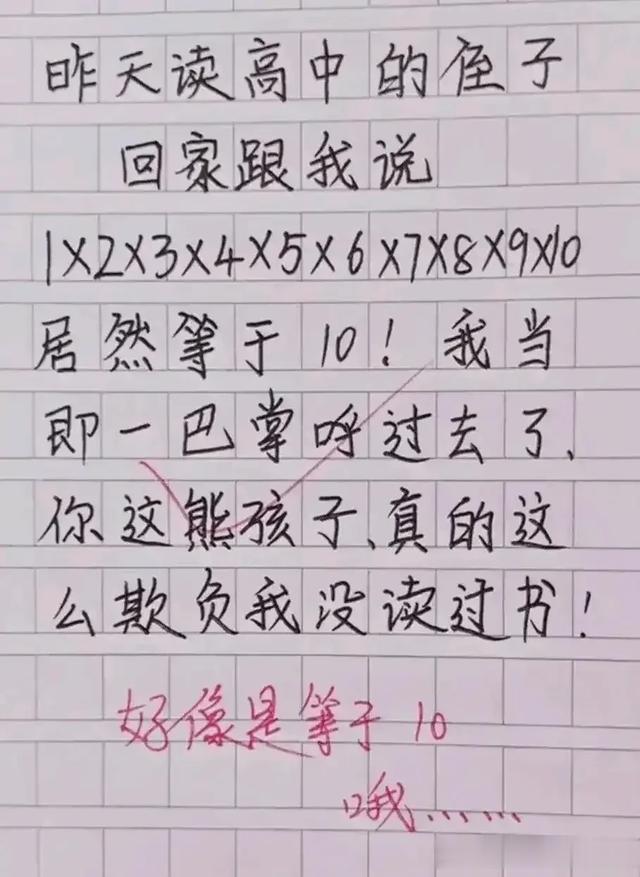 昨天读高中的侄子
回家跟我说
1×2×3×4×5×6×7×8×9×10
居然等于10！我当
即一巴掌呼过去了、
你这熊孩子、真的这
么欺负我没读过书！
好像是等于10
哦……